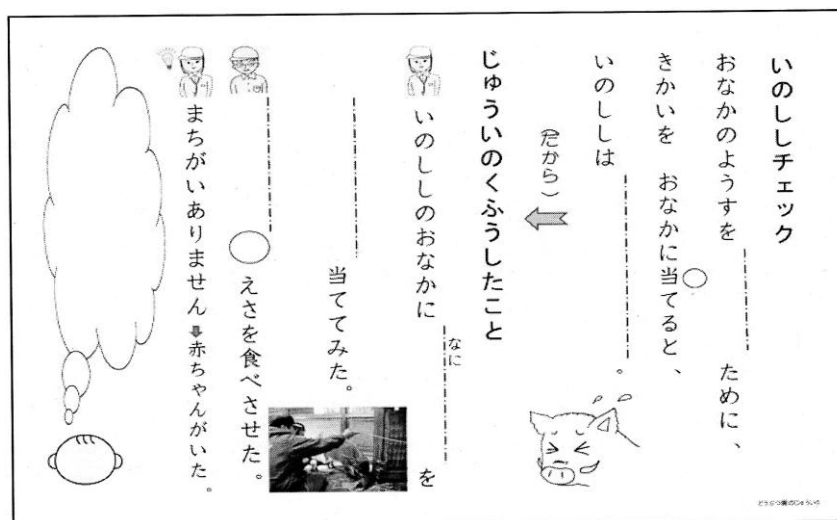 いのししチェック
おなかのようすを ために、
きかいを おなかに当てると、
いのししは 。
（だから）
じゅういのくふうしたこと
いのししのおなかに なに を
当ててみた。
えさを食べさせた。
まちがいありません➡赤ちゃんがいた。